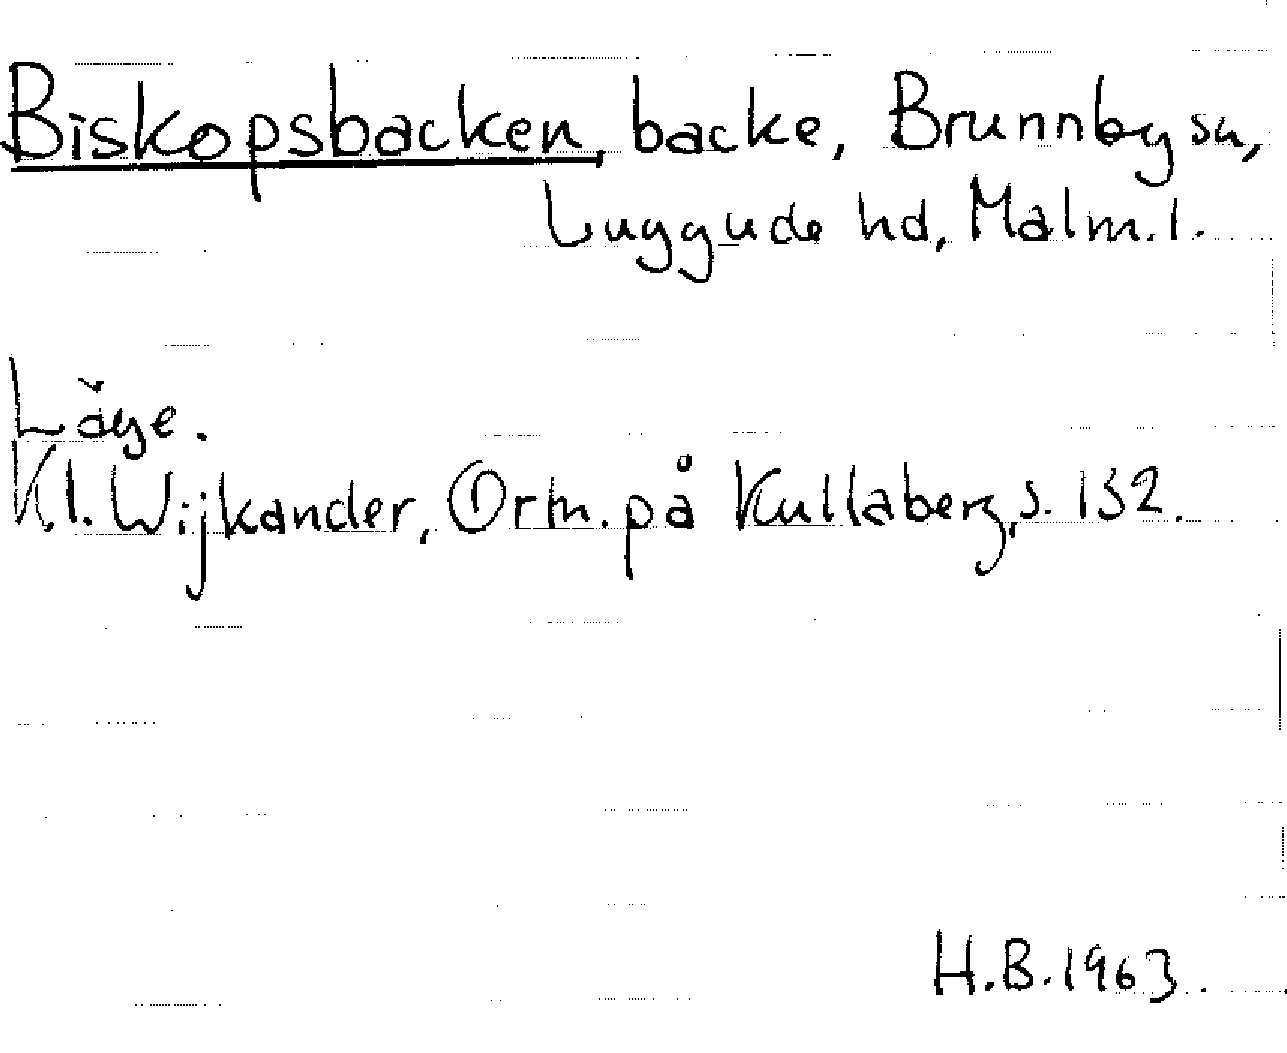 Biskopsbacken, backe, Brunnby sn,
Luggude hd, Malm. l.
Läge.
K. I. Wijkander, Ortn. på Kullaberg, s. 132.
H.B. 1963.